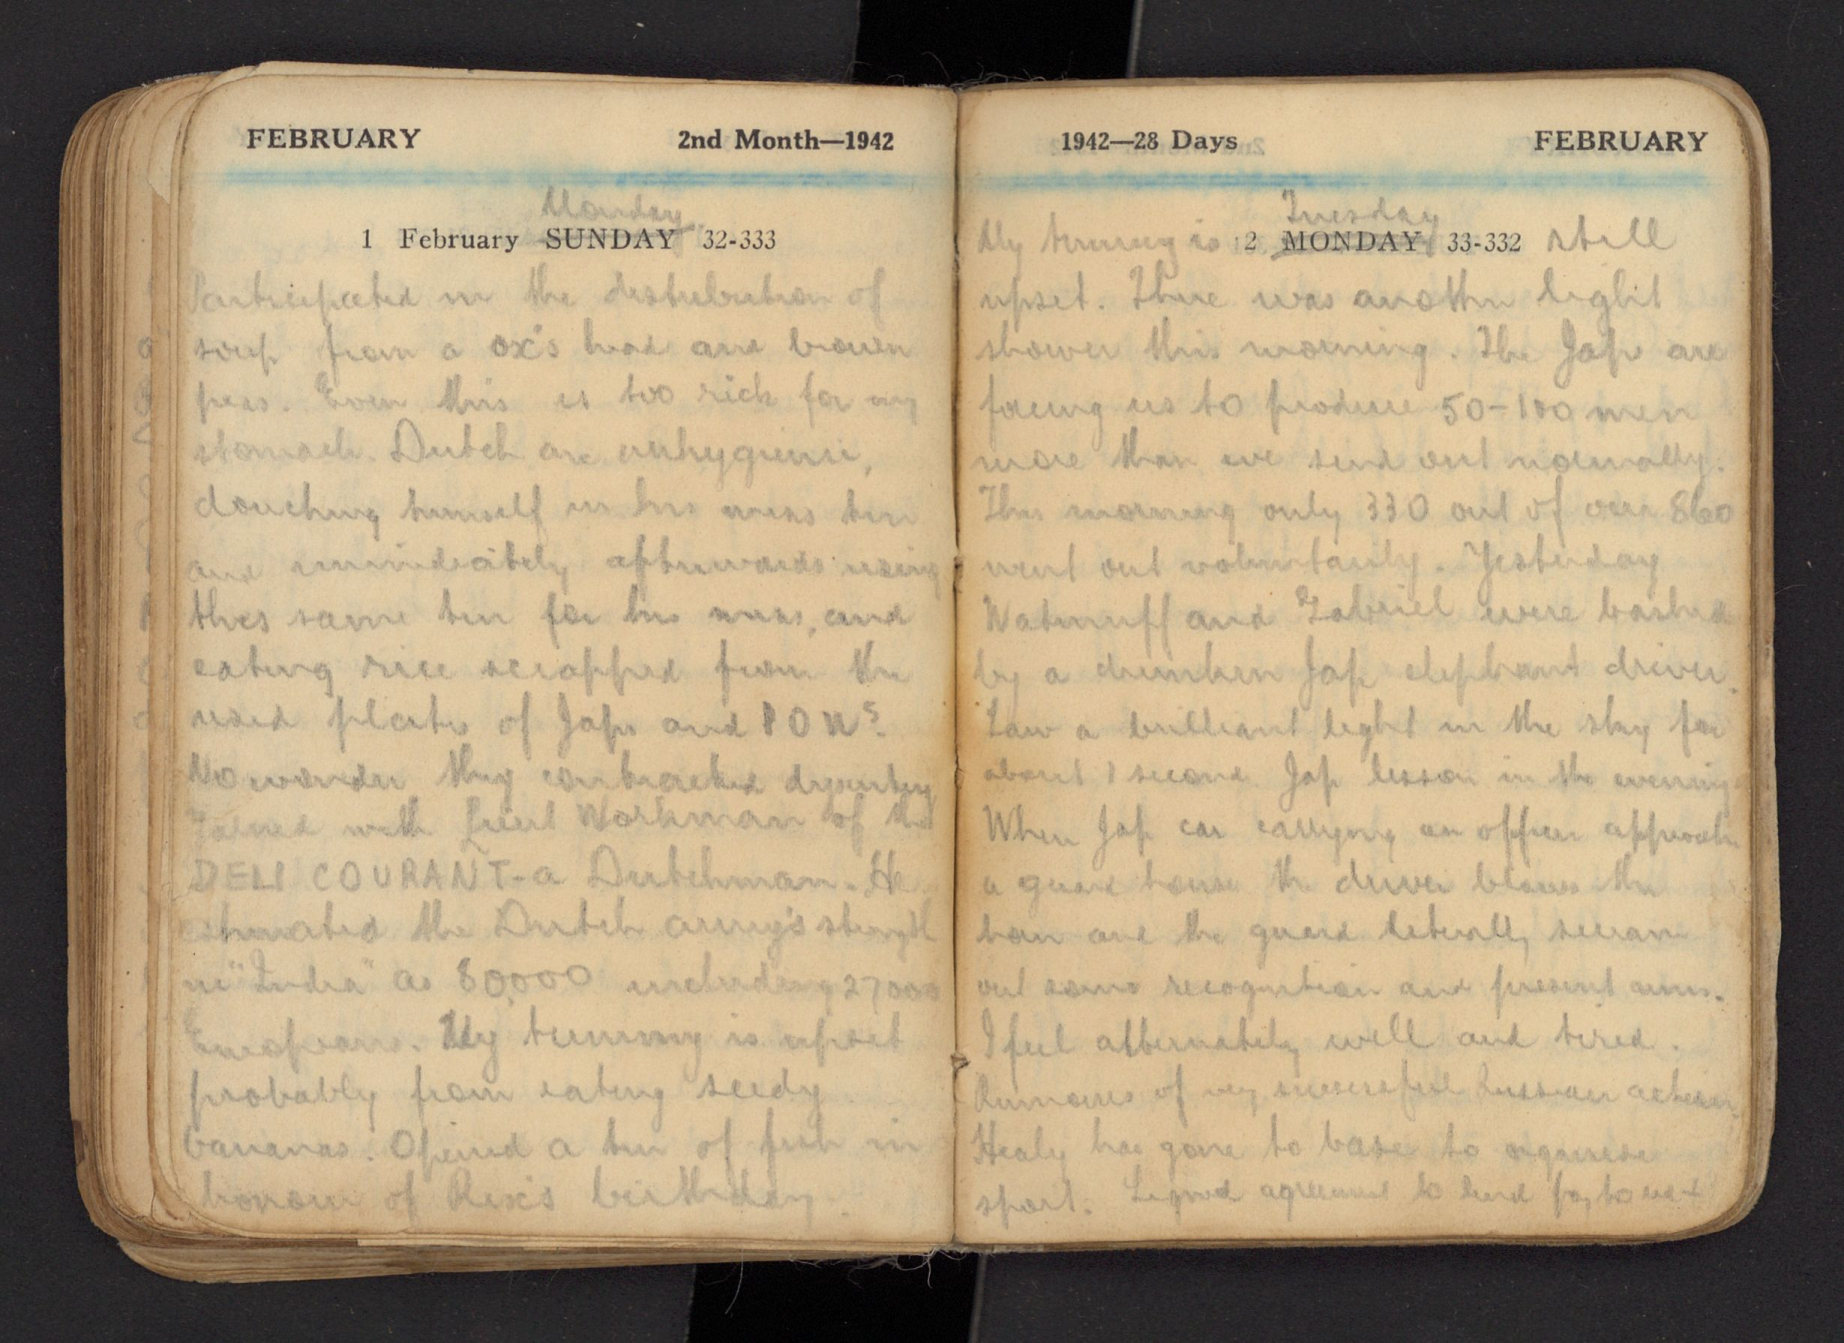 FEBRUARY 2nd Month—1942
Monday
1 February SUNDAY 32-333
Participated in the distribution of
soup from a ox's head and brown
peas. Even this is too rich for my
stomach. Dutch are unhygienic,
douching himself in his mess tin
and immediately afterwards using
this same tin for his mess, and
eating rice scrapped from the
used plates of Japs and POWs.
No wonder they contracted dysentery
Talked with Lieut Workman of the
DELI COURANT - a Dutchman. He
estimated the Dutch army's strength
in "India" as 80,000 including 27000
Europeans. My tummy is upset
probably from eating seedy
bananas. Opened a tin of fish in
honour of Rex's birthday.
1942—28 Days FEBRUARY
Tuesday
My tummy is 2 MONDAY 33-332 still
upset. There was another light
shower this morning. The Japs are
forcing us to produce 50-100 men
more than we send out normally.
This morning only 330 out of over 860
went out voluntarily. Yesterday
Watmuff and Gabriel were bashed
by a drunken Jap elephant driver.
Saw a brilliant light in the sky for
about 1 second. Jap lesson in the evening
When Jap car carrying an officer approach
a guard house the driver blows the
horn and the guard literally scream
out some recognition and present arms.
I feel alternately well and tired.
Rumours of very successful Russian action.
Healy has gone to base to organise
sport. Signed agreement to lend